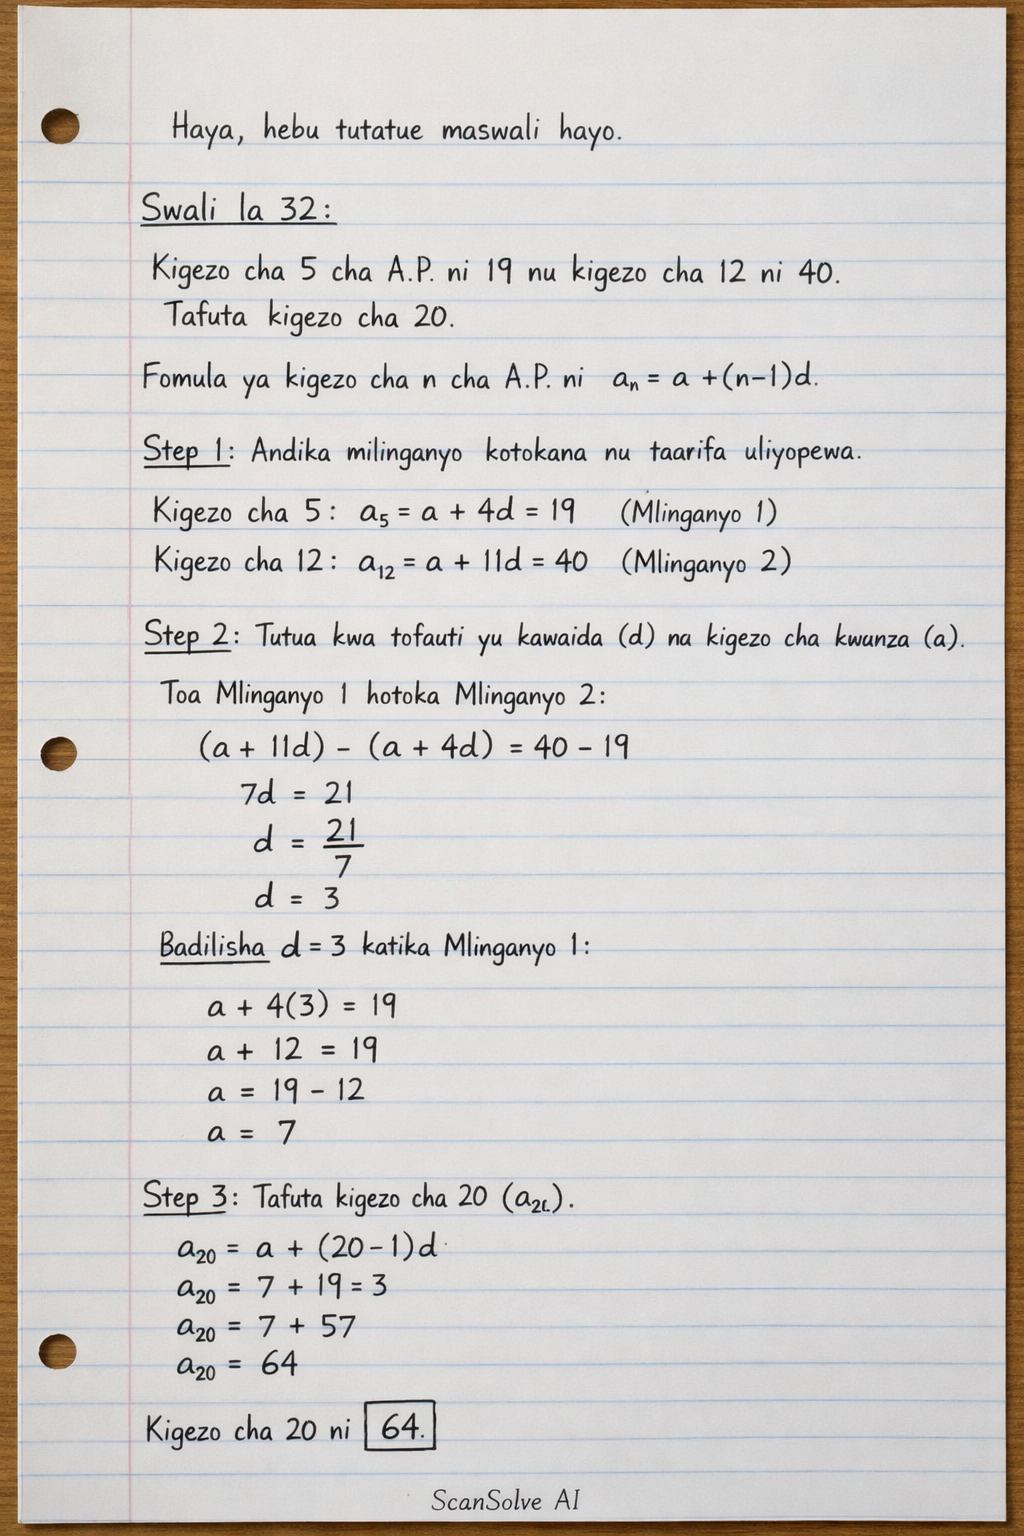 Haya, hebu tutatue maswali hayo.
Swali la 32:
Kigezo cha 5 cha A.P. ni 19 nu kigezo cha 12 ni 40.
Tafuta kigezo cha 20.
Fomula ya kigezo cha n cha A.P. ni aₙ = a + (n-1)d.
Step 1: Andika milinganyo kotokana nu taarifa uliyopewa.
Kigezo cha 5: a₅ = a + 4d = 19 (Mlinganyo 1)
Kigezo cha 12: a₁₂ = a + 11d = 40 (Mlinganyo 2)
Step 2: Tutua kwa tofauti yu kawaida (d) na kigezo cha kwanza (a).
Toa Mlinganyo 1 hotoka Mlinganyo 2:
(a + 11d) - (a + 4d) = 40 - 19
7d = 21
d = 21/7
d = 3
Badilisha d = 3 katika Mlinganyo 1:
a + 4(3) = 19
a + 12 = 19
a = 19 - 12
a = 7
Step 3: Tafuta kigezo cha 20 (a₂).
a₂₀ = a + (20-1)d
a₂₀ = 7 + 19 = 3
a₂₀ = 7 + 57
a₂₀ = 64
Kigezo cha 20 ni 64.
ScanSolve AI